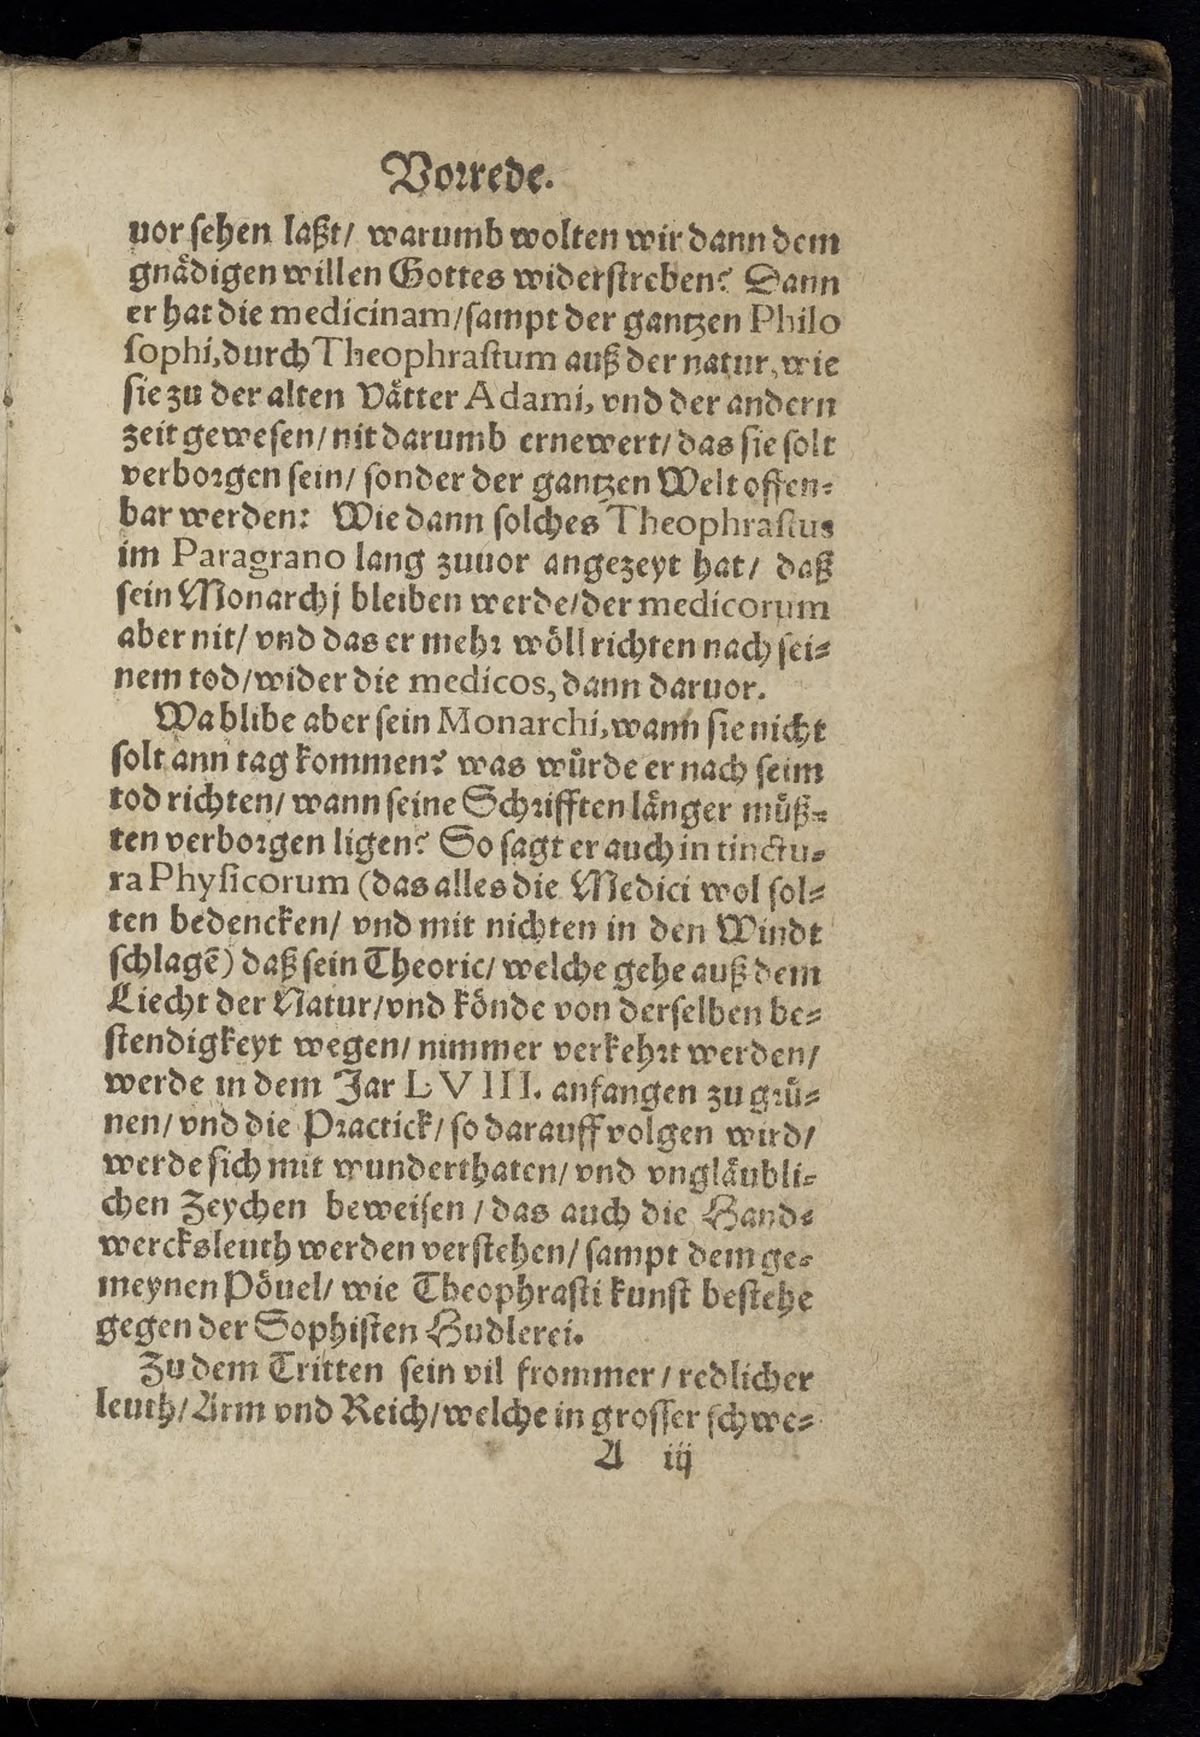 Vorrede.
uor sehen laßt/ warumb wolten wir dann dem
gnaͤdigen willen Gottes widerstreben? Dann
er hat die medicinam/sampt der gantzen Philo
sophi, durch Theophrastum auß der natur, wie
sie zu der alten Vaͤtter Adami, vnd der andern
zeit gewesen/ nit darumb ernewert/ das sie solt
verborgen sein/ sonder der gantzen Welt offen⸗
bar werden: Wie dann solches Theophrastus
im Paragrano lang zuuor angezeyt hat/ daß
sein Monarchj bleiben werde/der medicorum
aber nit/ vnd das er mehr woͤll richten nach sei⸗
nem tod/wider die medicos, dann daruor.
Wa blibe aber sein Monarchi, wann sie nicht
solt ann tag kommen? was wuͤrde er nach seim
tod richten/ wann seine Schrifften laͤnger muͤß⸗
ten verborgen ligen? So sagt er auch in tinctu⸗
ra Physicorum (das alles die Medici wol sol⸗
ten bedencken/ vnd mit nichten in den Windt
schlagē) daß sein Theoric/ welche gehe auß dem
Liecht der Natur/vnd koͤnde von derselben be⸗
stendigkeyt wegen/ nimmer verkehrt werden/
werde in dem Jar LVIII. anfangen zu gruͤ⸗
nen/ vnd die Practick/ so darauff volgen wird/
werde sich mit wunderthaten/ vnd vnglaͤubli⸗
chen Zeychen beweisen / das auch die Hand⸗
wercksleuth werden verstehen/ sampt dem ge⸗
meynen Poͤuel/ wie Theophrasti kunst bestehe
gegen der Sophisten Hudlerei.
Zu dem Tritten sein vil frommer / redlicher
leuth/ Arm vnd Reich/welche in grosser schwe⸗
A iij